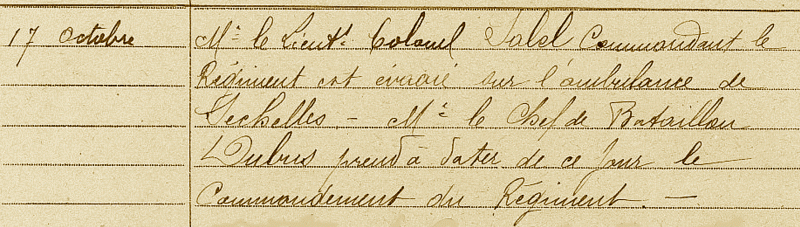 17 Octobre
Mr le Lieutt Colonel Salel Commandant le
Régiment est évacué sur l'ambulance de
Sechelles - Mr le Chef de Bataillon
Dubus prend à dater de ce jour le
Commandement du Régiment. -